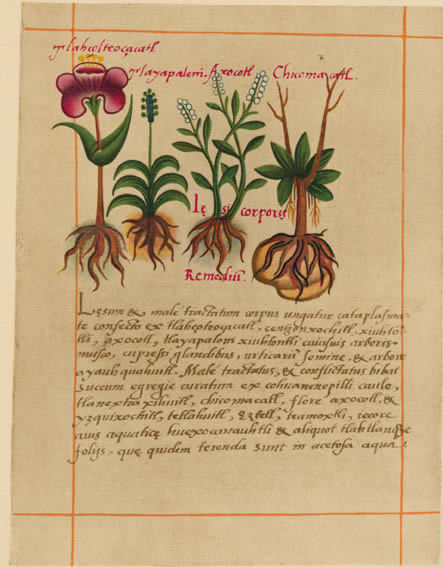 Tlahçolteoçacatl.
Tlayapaloni. Axocotl. Chicomacatl.
Lę si corporis
Remediũ.
Lęsum & male tractatum corpus ungatur cataplasma-
te confecto ex tlahçolteoçacatl, centzonxochitl, xiuhto-
tli, axocotl, tlayapaloni xiuhtontli cuiusuis arboris
musco, cupressi glandibus, urticarũ semine, & arbore
ayauh quahuitl. Male tractatus, & conflictatus bibat
succum egregie curatum ex cohuanenepilli caule,
tlanextia xihuitl, chicomacatl, flore axocotl, &
yzquixochitl, tetlahuitl, eztetl, teamoxtli, iecore
auis aquaticę huexocanauhtli & aliquot
folijs. quę quidem terenda sunt in acetosa aqua.